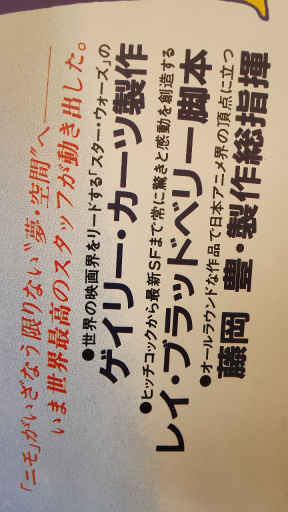 「ニモ」がいざなう限りない“夢・空間”へ———
いま世界最高のスタッフが動き出した。
●世界の映画界をリードする「スター・ウォーズ」の
ゲイリー・カーツ製作
●ヒッチコックから最新SFまで常に驚きと感動を創造する
レイ・ブラッドベリー脚本
●オールラウンドな作品で日本アニメ界の頂点に立つ
藤岡 豊・製作総指揮